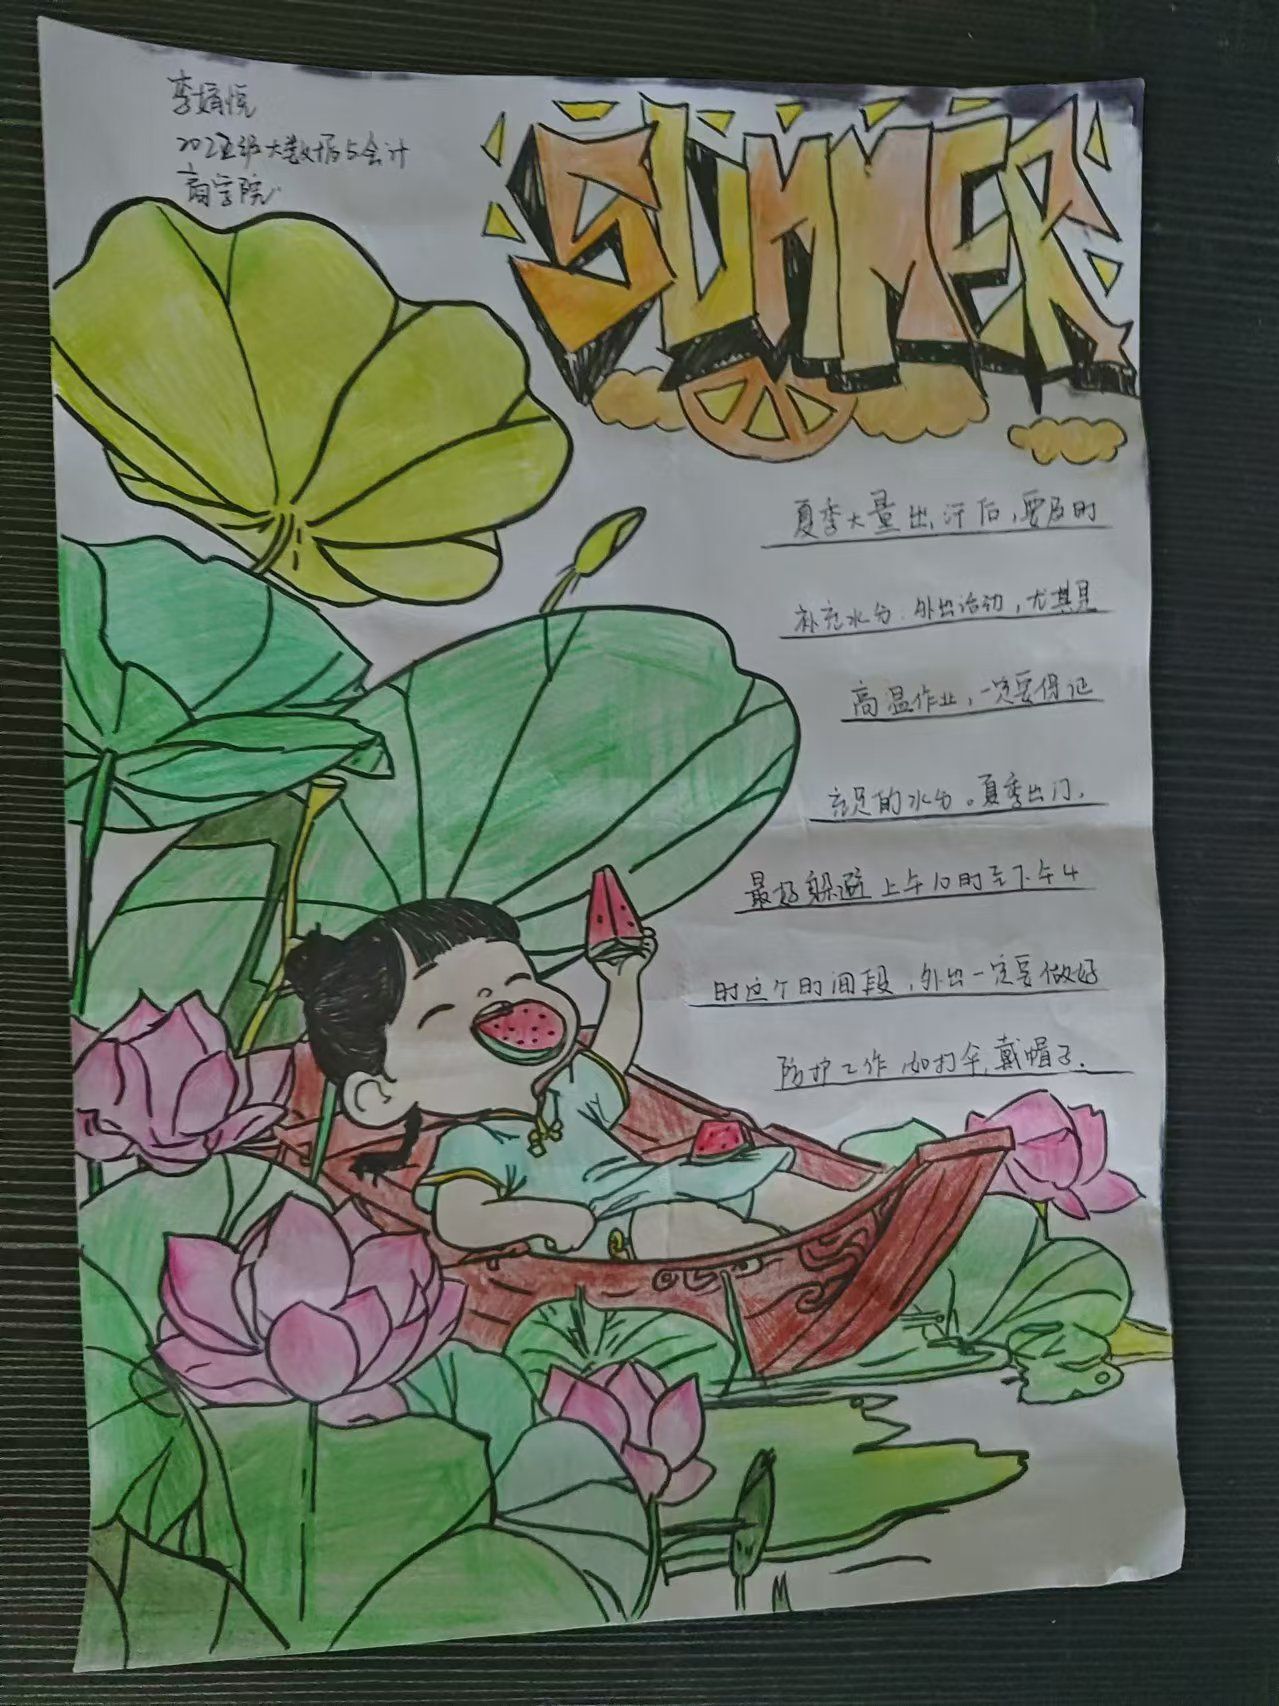 李娟悦
2025级大数据与会计
商学院
SUMMER
夏季大量出汗后，要及时
补充水分.外出活动，尤其是
高温作业，一定要保证
充足的水分。夏季出门，
最好躲避上午10时至下午4
时这个时间段，外出一定要做好
防护工作，如打伞，戴帽子.